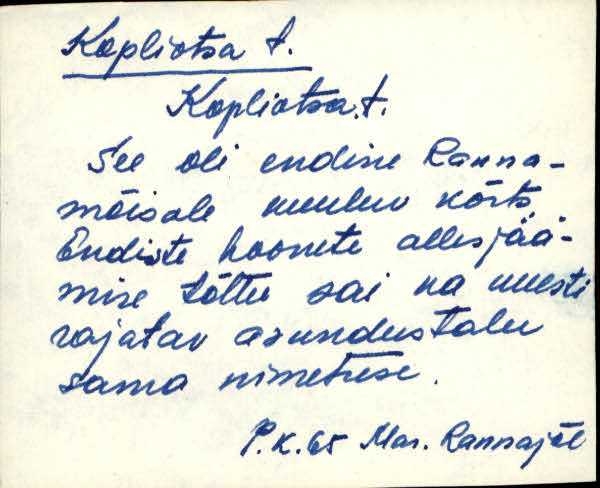 Kopliotsa t.
Kopliotsa t.
See oli endine Ranna-
mõisale kuuluv kõrts.
Endiste hoonete allesjää-
mise tõttu sai ka uuesti
rajatav asundustalu
sama nimetuse.
P.K. 65 Mar. Rannajõe